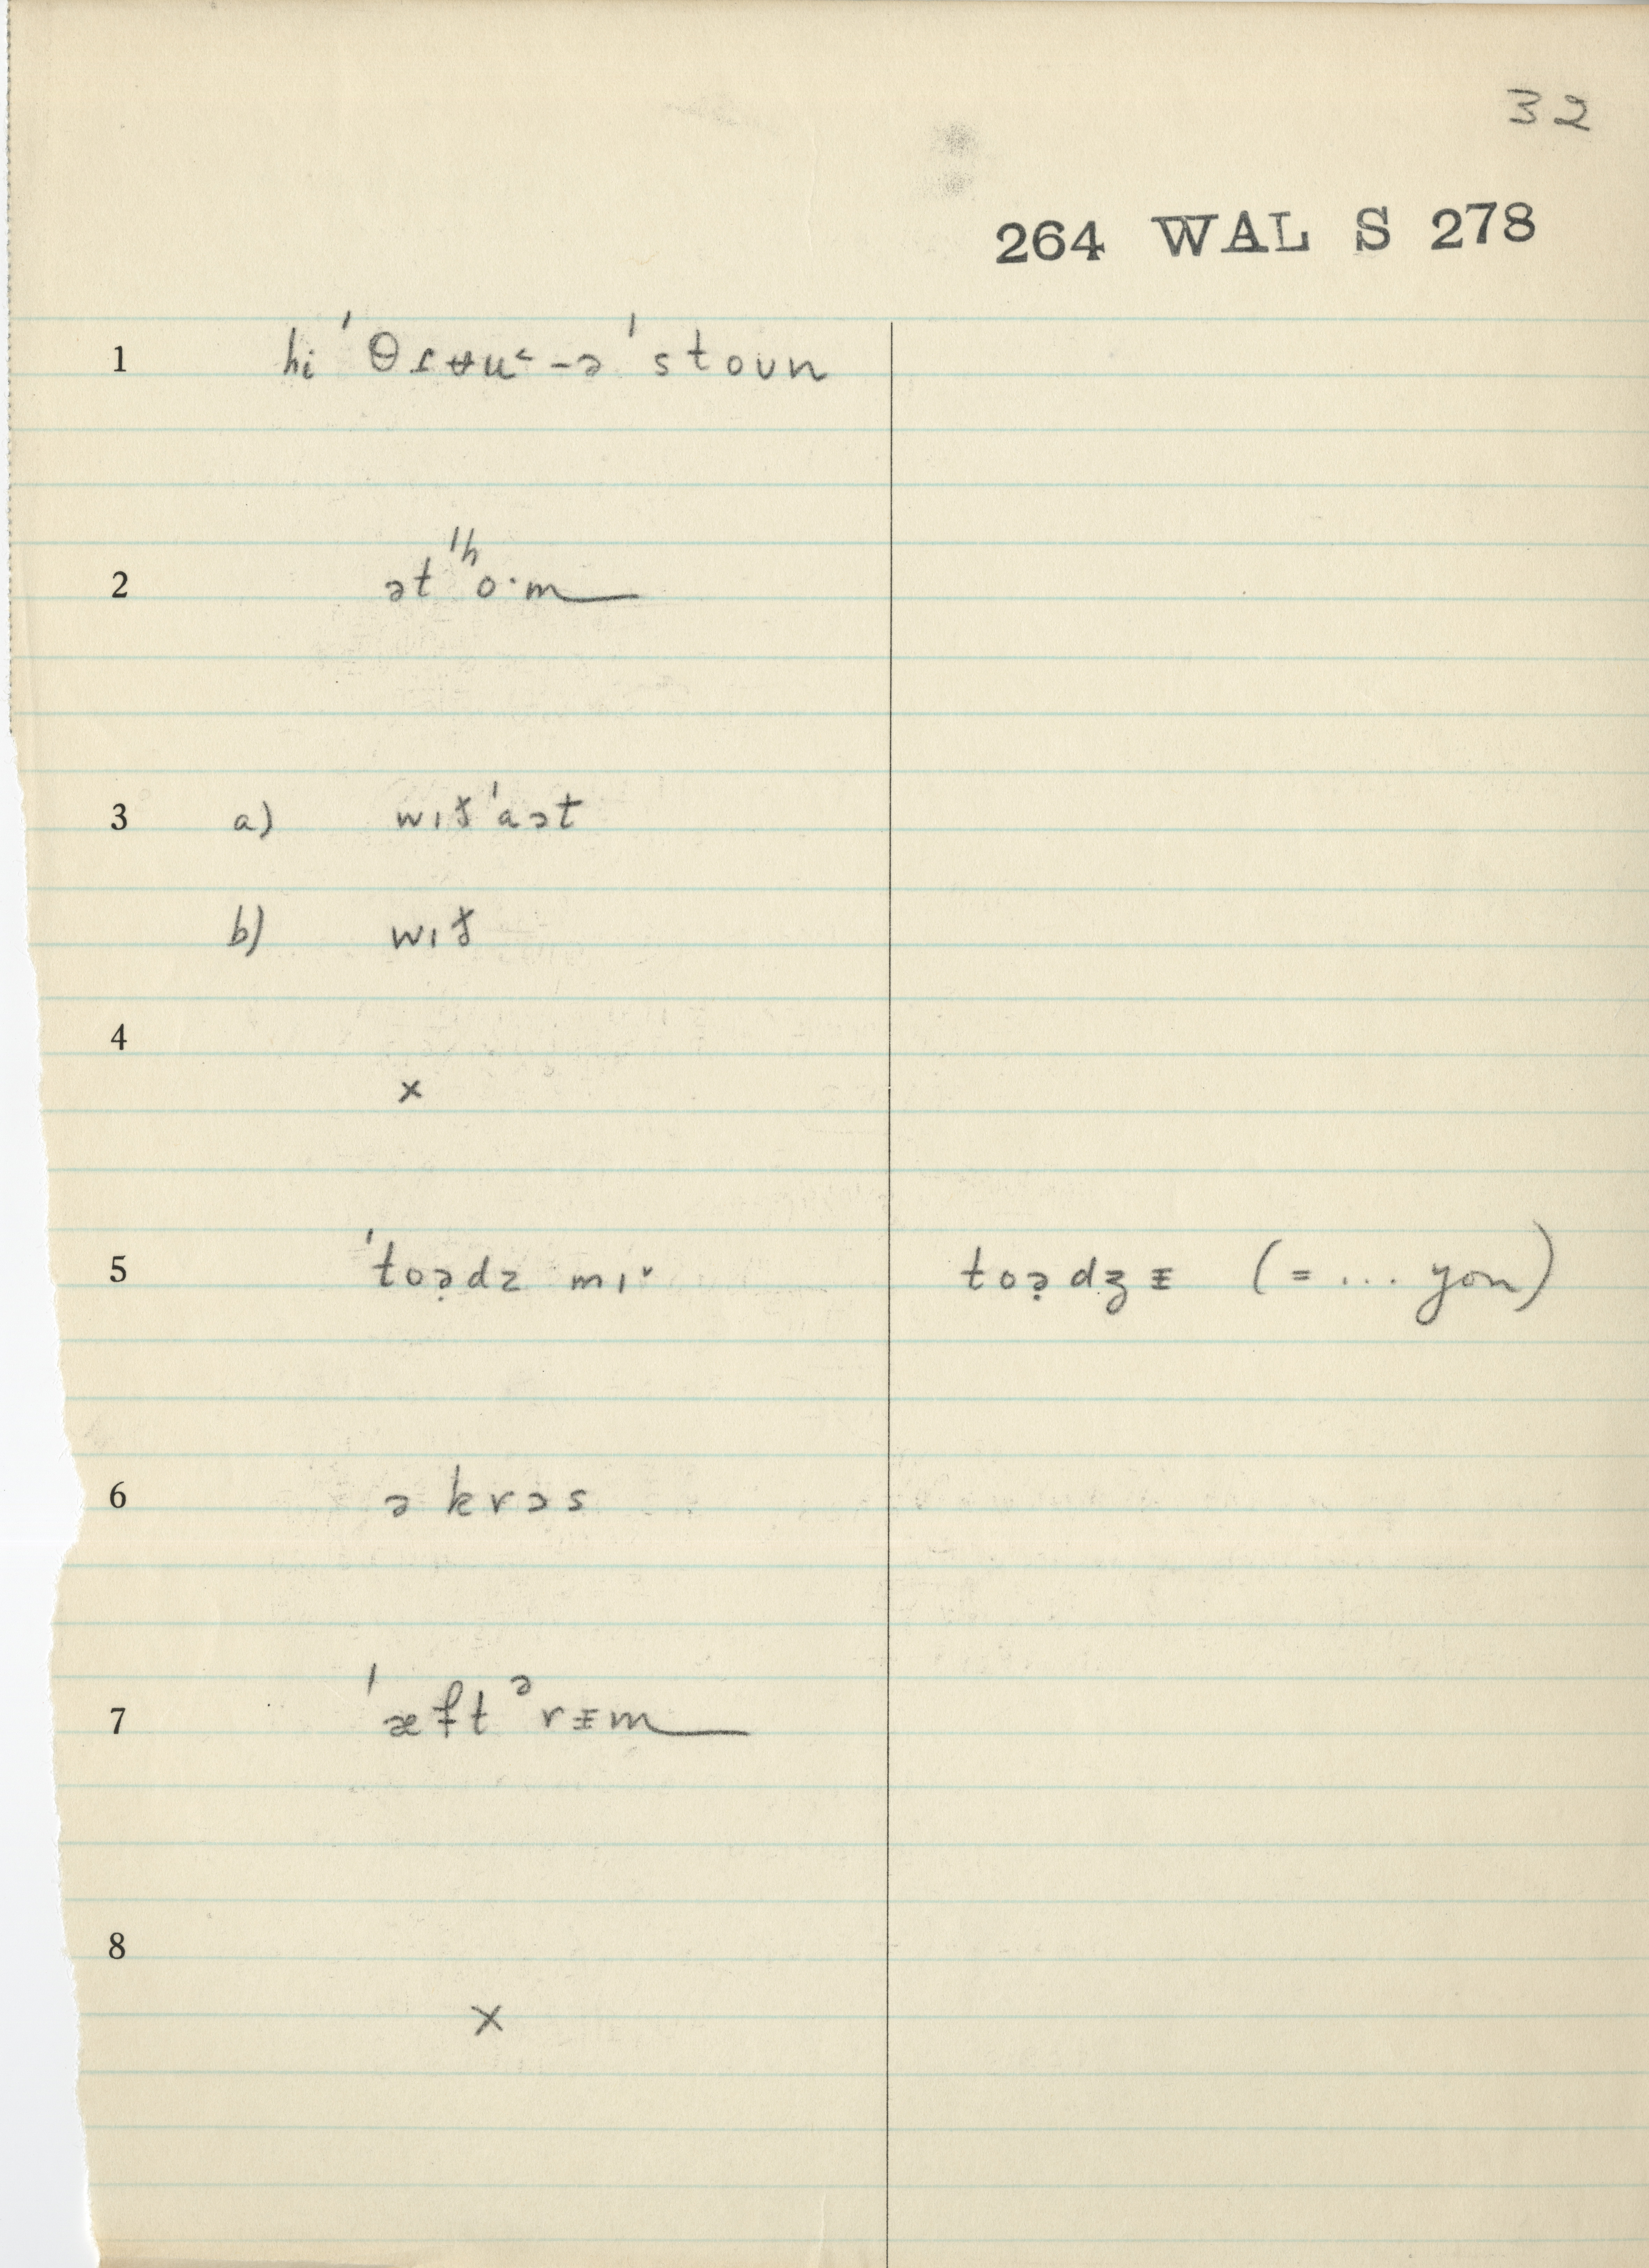 32
264 WAL S 278
1 hi ˈθɾʉu˂-ə ˈstoun
2 ət ˈʰo·m
3 a) wɪð̵ ˈaət
b) wɪð̵
4
x
5 ˈtoə̣dz mɪ˅ toə̣dẓ ᵻ (= ... you)
6 ə krɔs
7 ˈæftᵊrᵻm
8
x